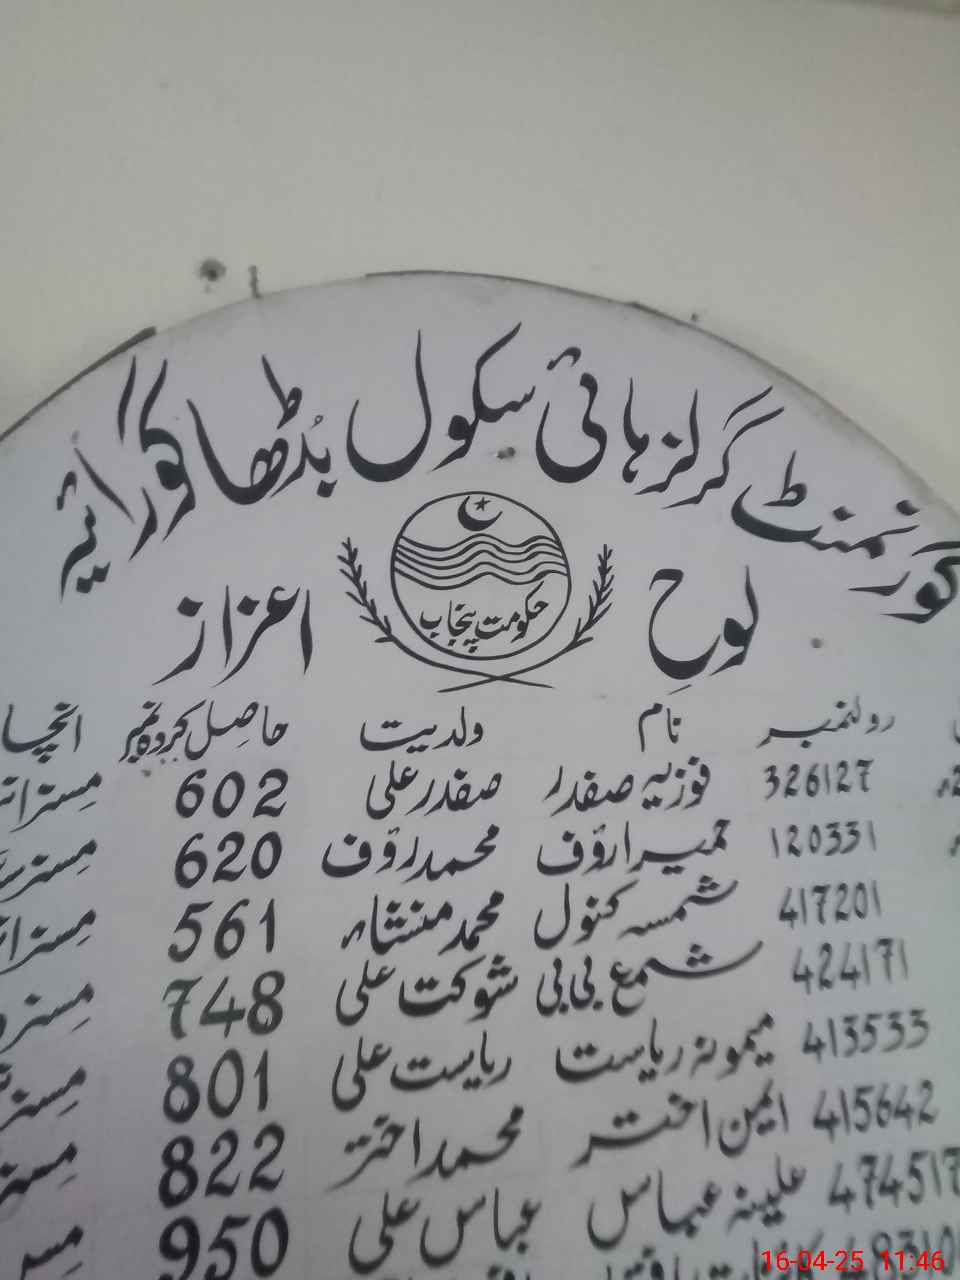 گورنمنٹ گرلز ہائی سکول بُڈھا گورائیہ
حکومت پنجاب
لوحِ اعزاز
رولنمبر نام ولدیت حاصل کردہ نمبر
326127 فوزیہ صفدر صفدر علی 602
120331 حمیرا رؤف محمد رؤف 620
417201 شمسہ کنول محمد منشاء 561
424171 شمع بی بی شوکت علی 748
413533 میمونہ ریاست ریاست علی 801
415642 ایمن اختر محمد اختر 822
474517 علینہ عباس عباس علی 950
16-04-25 11:46